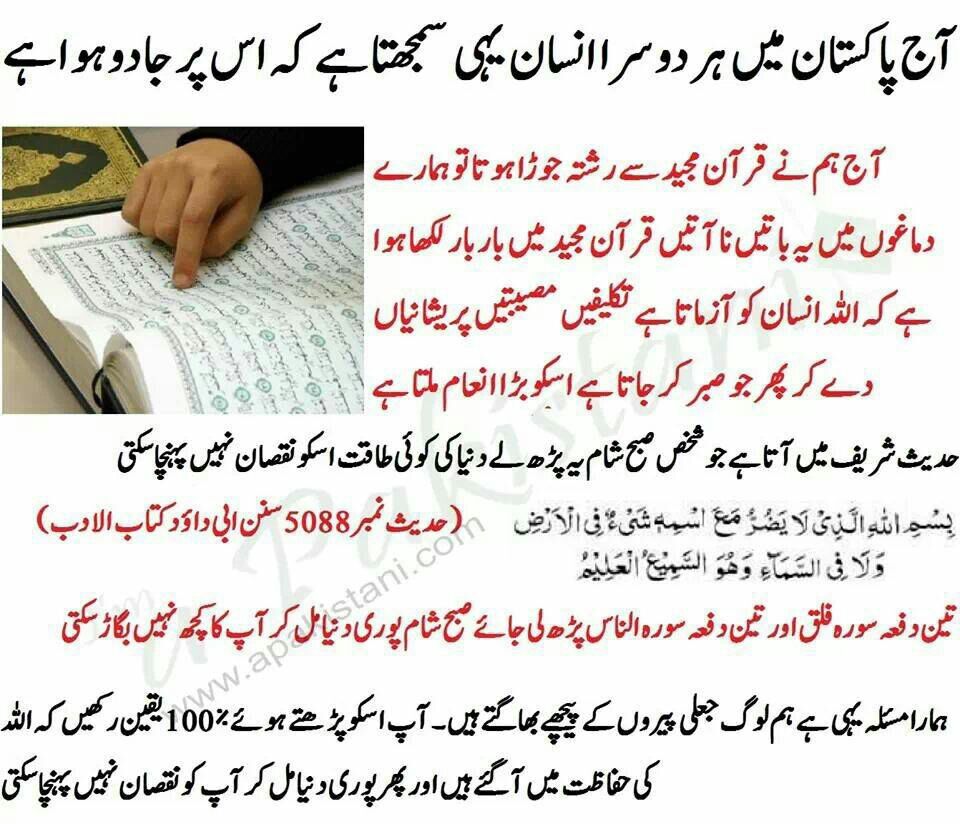 آج پاکستان میں ہر دوسرا انسان یہی سمجھتا ہے کہ اس پر جادو ہوا ہے
آج ہم نے قرآن مجید سے رشتہ جوڑا ہوتا تو ہمارے
دماغوں میں یہ باتیں نا آتیں قرآن مجید میں بار بار لکھا ہوا
ہے کہ اللہ انسان کو آزماتا ہے تکلیفیں مصیبتیں پریشانیاں
دے کر پھر جو صبر کر جاتا ہے اسکو بڑا انعام ملتا ہے
حدیث شریف میں آتا ہے جو شخص صبح شام یہ پڑھ لے دنیا کی کوئی طاقت اسکو نقصان نہیں پہنچا سکتی
بِسْمِ اللهِ الَّذِیْ لَا یَضُرُّ مَعَ اسْمِهٖ شَیْءٌ فِی الْاَرْضِ (حدیث نمبر 5088 سنن ابی داؤد کتاب الادب)
وَلَا فِی السَّمَآءِ وَهُوَ السَّمِیْعُ الْعَلِیْمُ
تین دفعہ سورہ فلق اور تین دفعہ سورہ الناس پڑھ لی جائے صبح شام پوری دنیا مل کر آپ کا کچھ نہیں بگاڑ سکتی
ہمارا مسئلہ یہی ہے ہم لوگ جعلی پیروں کے پیچھے بھاگتے ہیں۔ آپ اسکو پڑھتے ہوئے 100% یقین رکھیں کہ اللہ
کی حفاظت میں آ گئے ہیں اور پھر پوری دنیا مل کر آپ کو نقصان نہیں پہنچا سکتی
www.apakistani.com